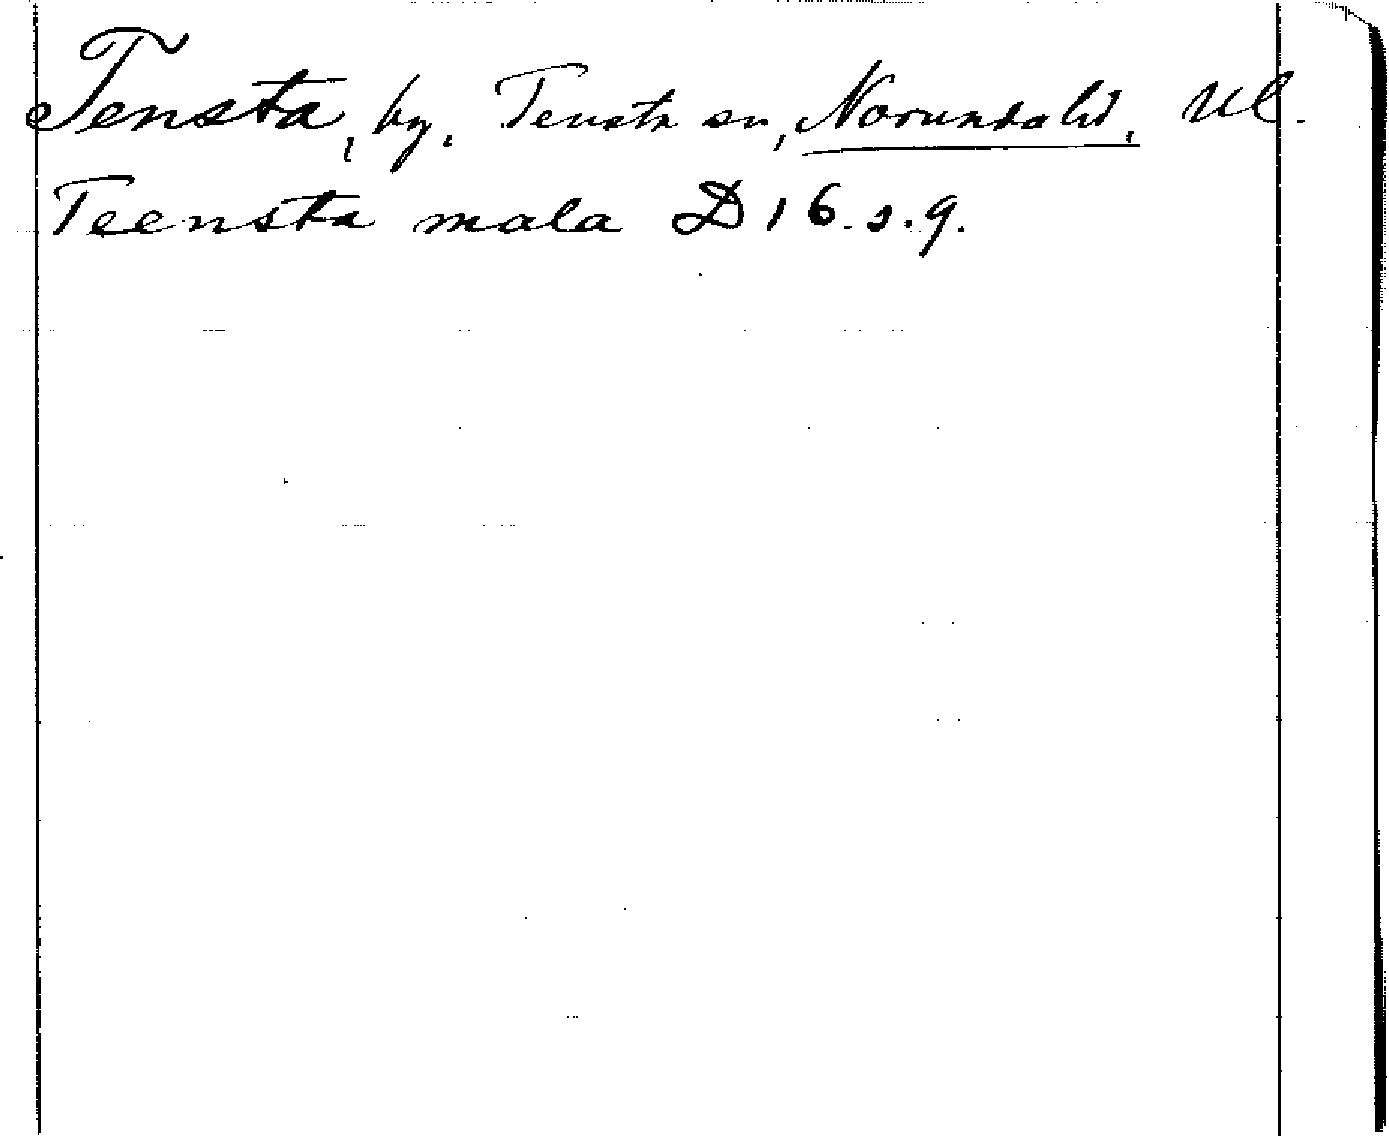 Tensta, by, Tensta sn, Norunda hd, Ul.
Teensta mala D 16. s. 9.